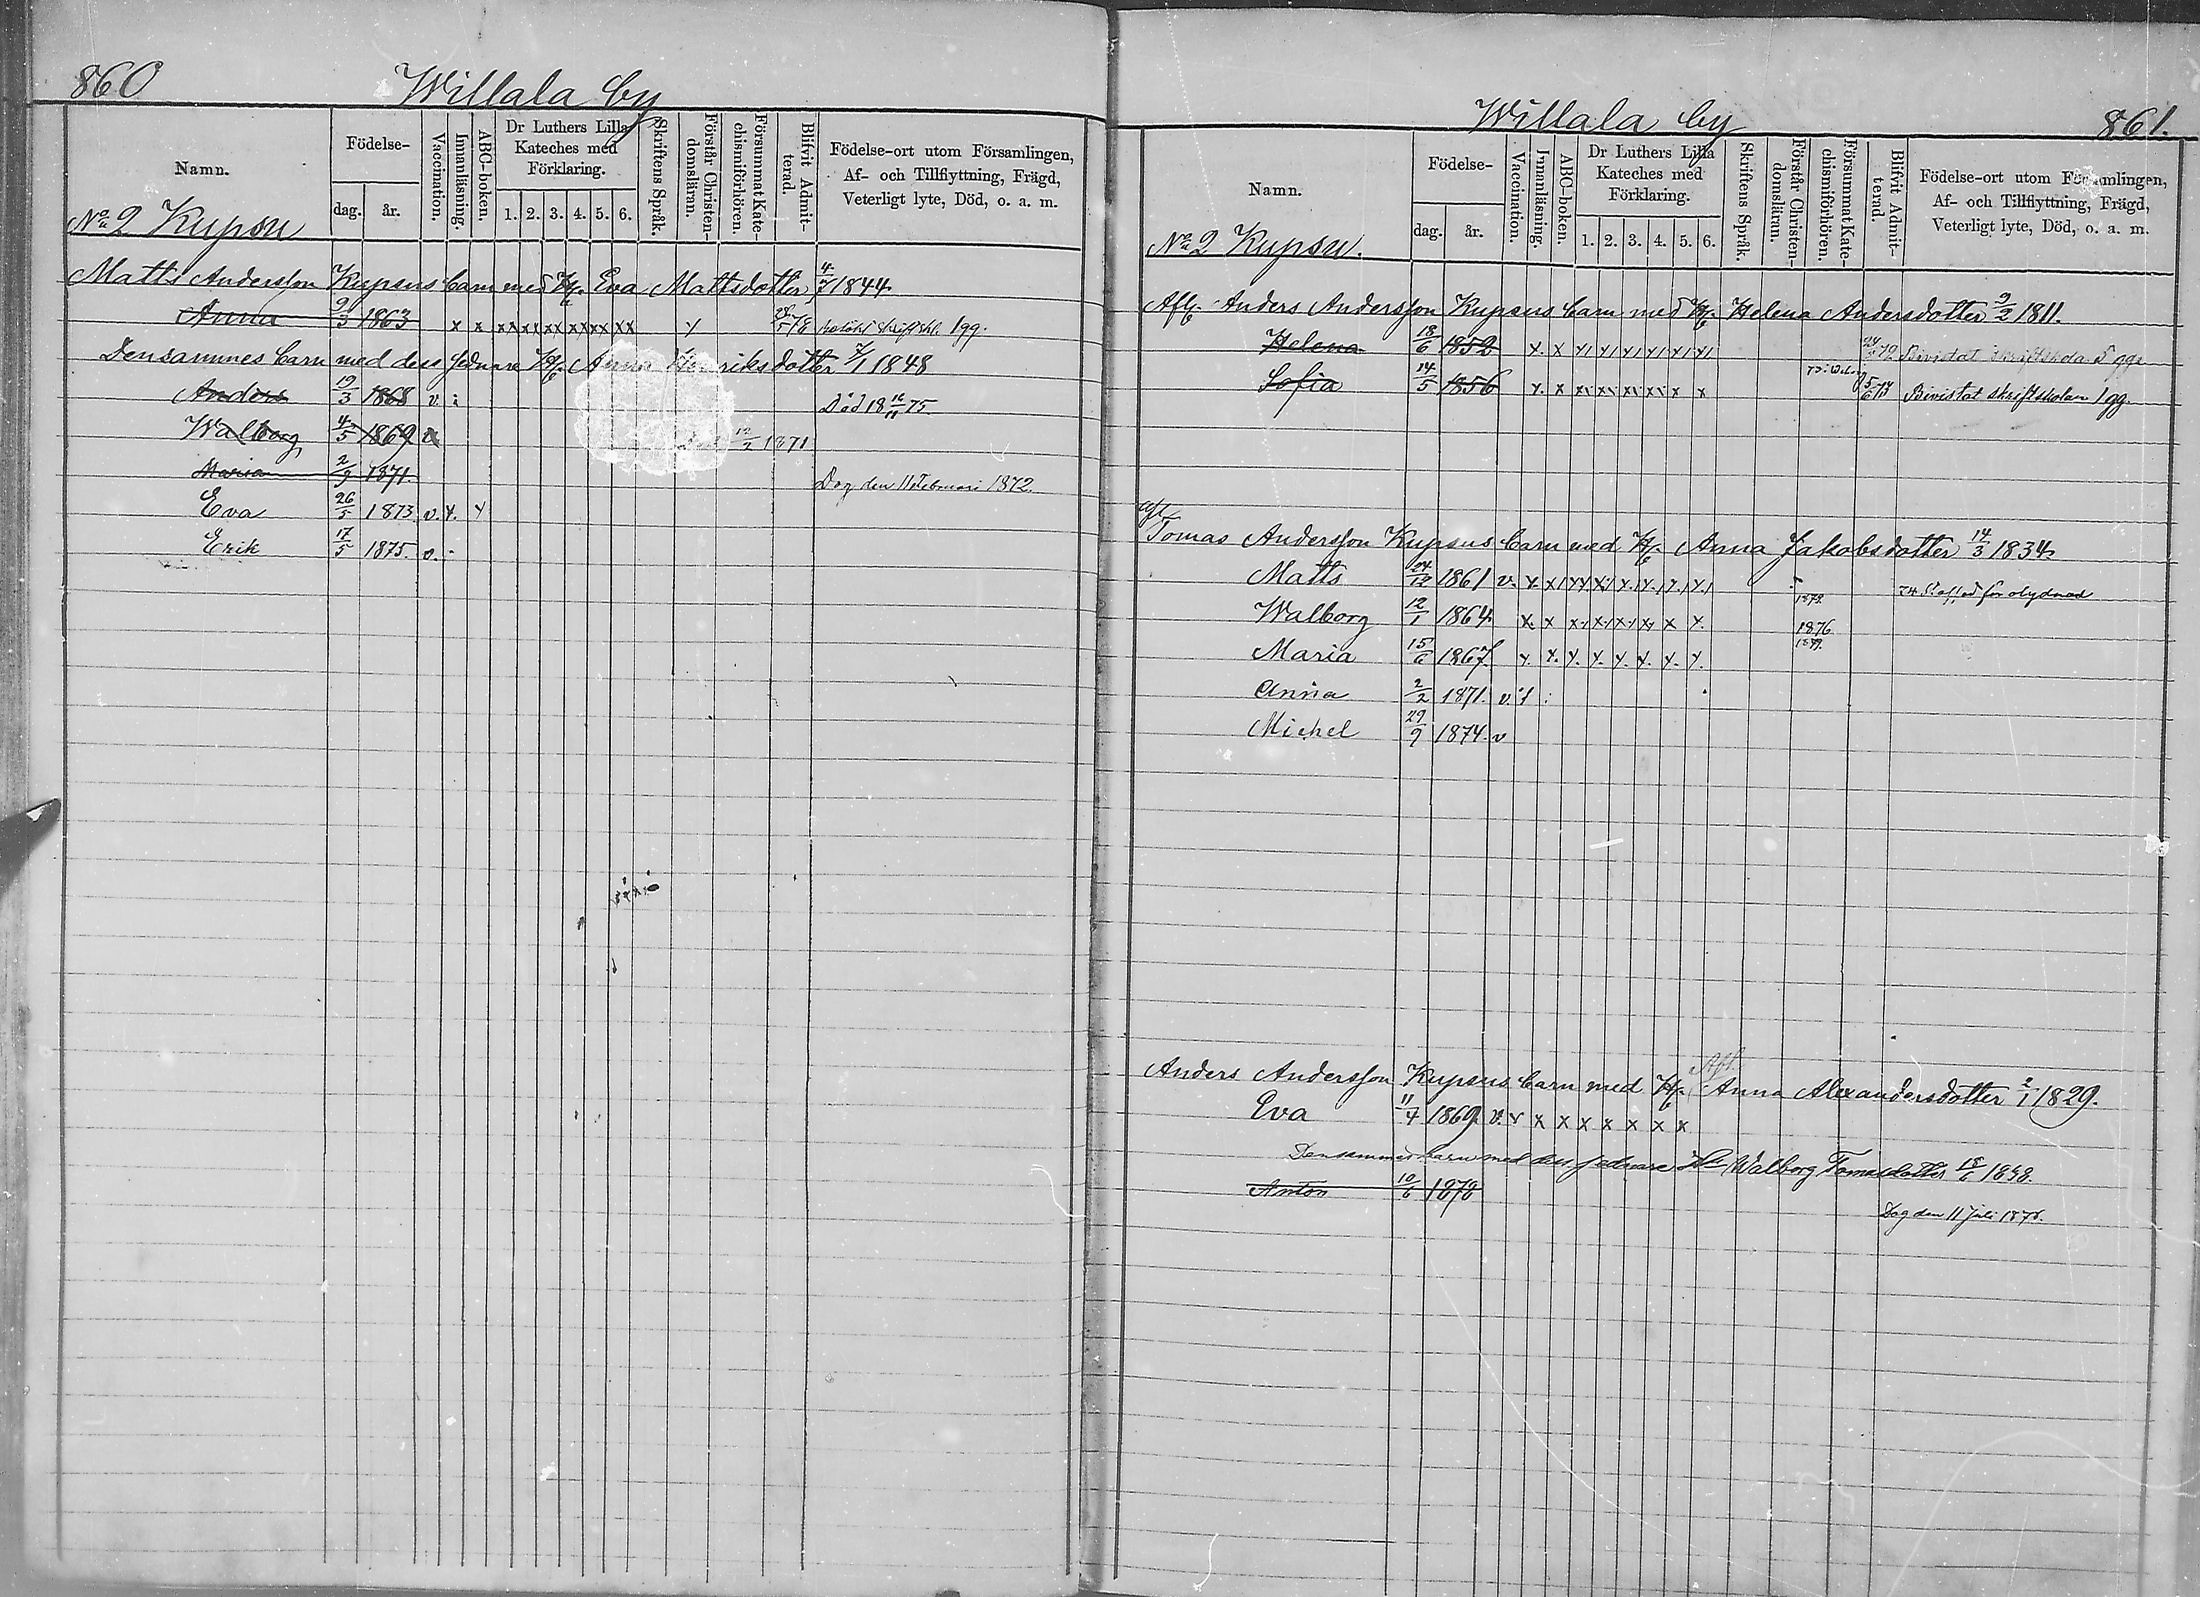 860
Willala by
Namn. Födelse- dag. år. Vaccination. Innanläsning. ABC-boken. Dr Luthers Lilla Kateches med Förklaring. 1. 2. 3. 4. 5. 6. Skriftens Språk. Förstår Christendomsläran. Försummat Katechismiförhören. Blifvit Admitterad. Födelse-ort utom Församlingen, Af- och Tillflyttning, Frägd, Veterligt lyte, Död, o. a. m.
No 2 Kupsu
Matts Andersson Kupsus barn med H. Eva Mattsdotter 4/7 1844.
Anna 9/3 1863 x x xx xx xx xx xx xx 78 1 gg.
Densammes barn med dess sednare H. Anna Henriksdotter 1848
Anders 19/3 1868 v. Död 18 16/11 75
Walborg 4/5 1869 v 12/2 1871
Maria 2/9 1871. Dog den 11 Februari 1872.
Eva 26/5 1873 v. x. x
Erik 17/5 1875. v.
Willala by
861.
Namn. Födelse- dag. år. Vaccination. Innanläsning. ABC-boken. Dr Luthers Lilla Kateches med Förklaring. 1. 2. 3. 4. 5. 6. Skriftens Språk. Förstår Christendomsläran. Försummat Katechismiförhören. Blifvit Admitterad. Födelse-ort utom Församlingen, Af- och Tillflyttning, Frägd, Veterligt lyte, Död, o. a. m.
No 2 Kupsu.
Afl. Anders Andersson Kupsus barn med H. Helena Andersdotter 9/2 1811.
Helena 18/6 1852 x. x x x x x x x Bivistat skriftskola 5 ggr
Sofia 14/5 1856 x. x x x x x x x 5/6 74 Bivistat skriftskolan 1 gg.
Afl.
Tomas Andersson Kupsus barn med H. Anna Jakobsdotter 14/3 1834.
Matts 24/12 1861 v. x. x x x x x x x för olydnad
Walborg 12/1 1864 x x x x x x x x. 1876
Maria 15/6 1867 x. x. x. x. x. x. x. x.
Anna 2/2 1871. v.
Michel 29/9 1874. v
Afl.
Anders Andersson Kupsus barn med H. Anna Alexandersdotter 2/1 1829.
Eva 11/4 1869 v. x x x x x x x x
Densammes barn med dess sednare Walborg Tomasdotter 18/6 1838.
Anton 10/6 1878
Dog den 11 Juli 1878.